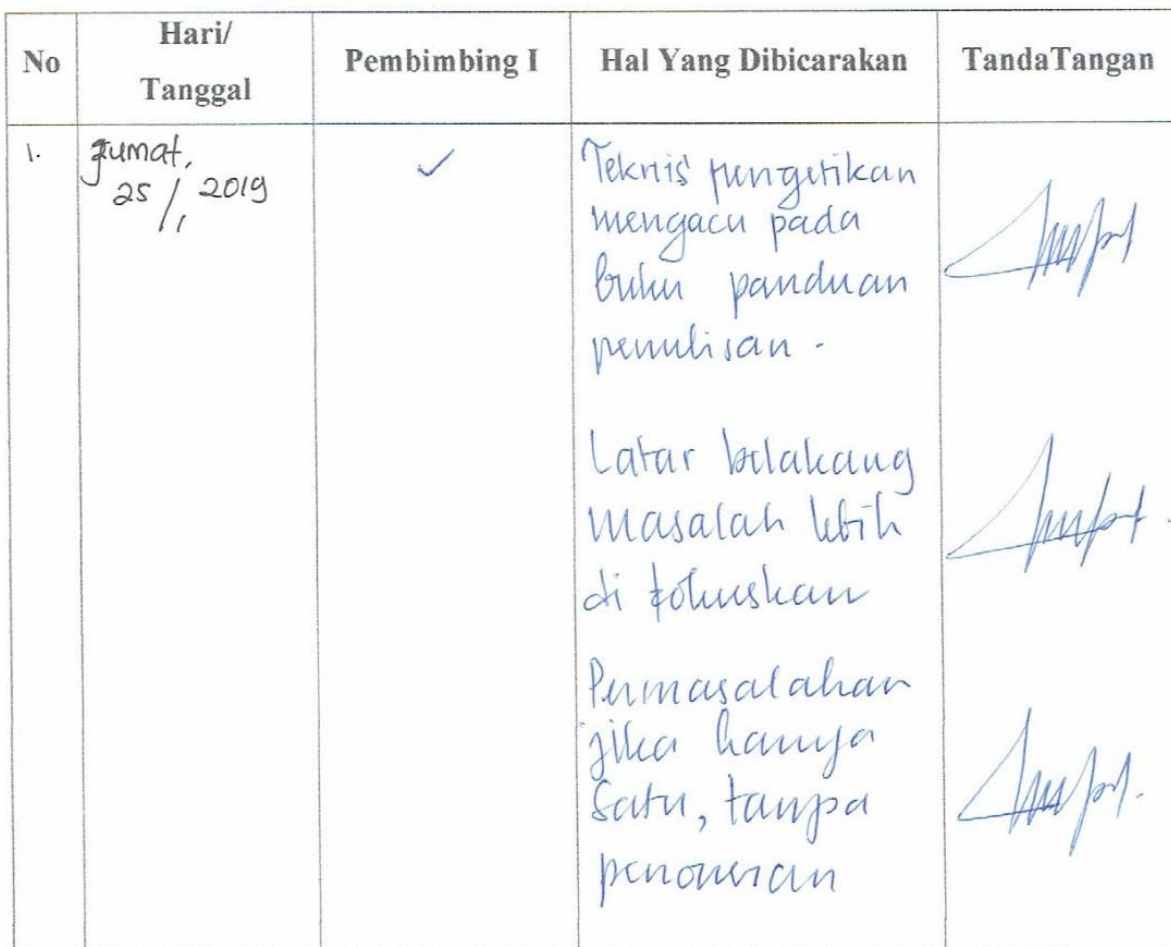 No
Hari/
Tanggal
Pembimbing I
Hal Yang Dibicarakan
TandaTangan
1.
Jumat,
25/1 2019
✓
Teknis pengetikan
mengacu pada
buku panduan
penulisan.
Latar belakang
masalah lebih
di fokuskan
Permasalahan
jika hanya
satu, tanpa
penomeran